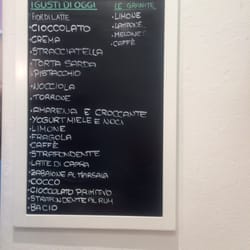 I GUSTI DI OGGI
FIORDILATTE
·CIOCCOLATO
·CREMA
·STRACCIATELLA
·TORTA SARDA
·PISTACCHIO
·NOCCIOLA
·TORRONE
·AMARENA E CROCCANTE
·YOGURT MIELE E NOCI
·LIMONE
·FRAGOLA
·CAFFÈ
·STRAFONDENTE
·LATTE DI CAPRA
·ZABAIONE AL MARSALA
·COCCO
·CIOCCOLATO PRIMITIVO
·STRAFONDENTE AL RUM
·BACIO
LE GRANITE
·LIMONE
·LAMPONE
·CAFFÈ